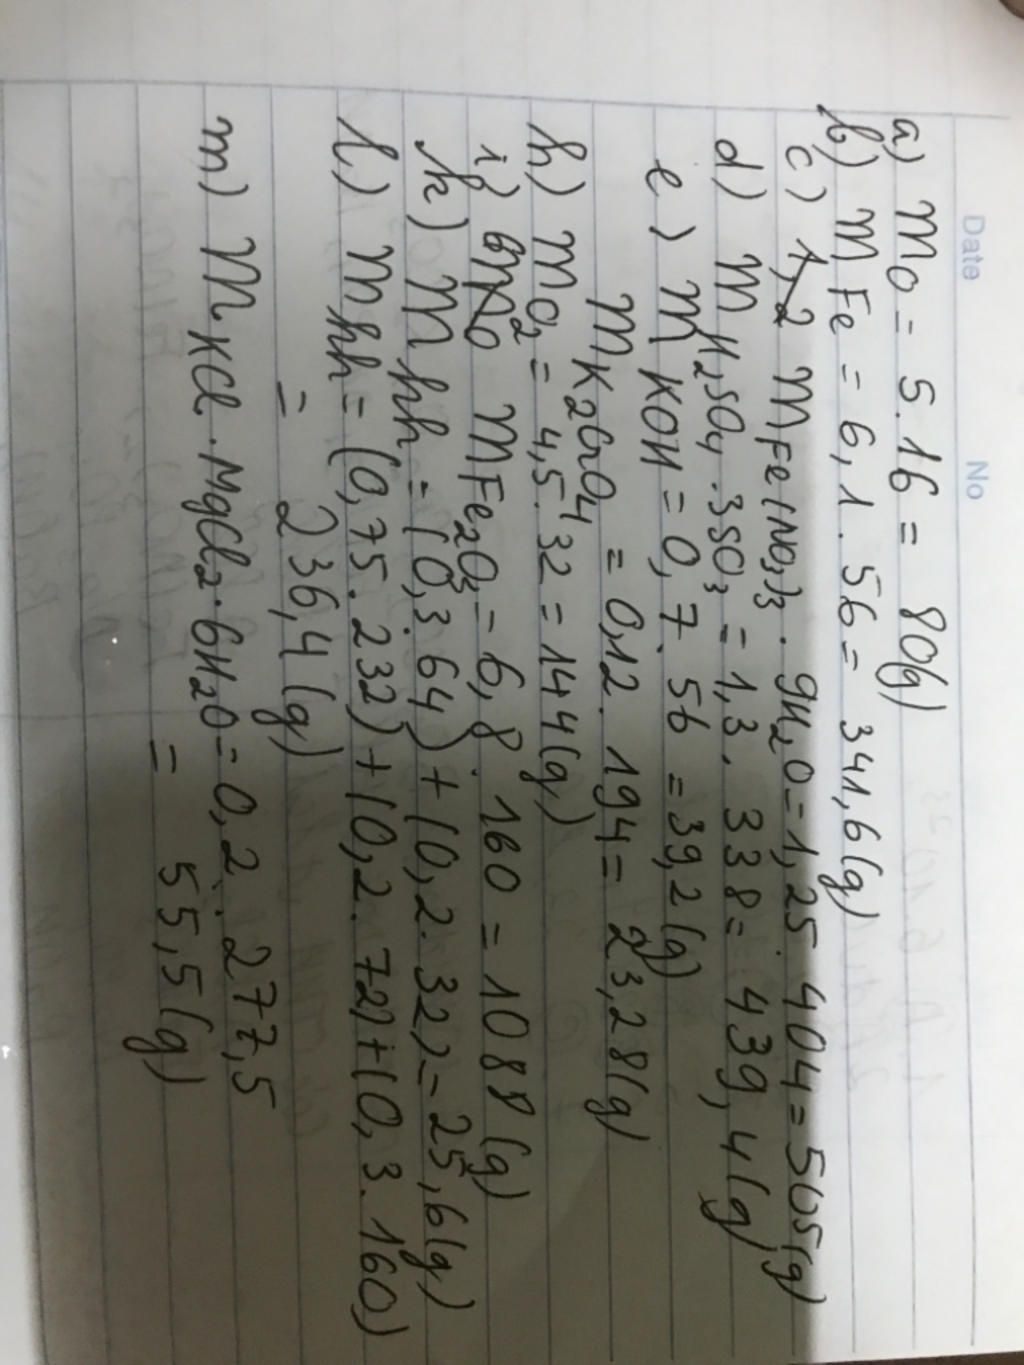 Date No
a) mO = 5.16 = 80(g)
b) mFe = 6,1.56 = 341,6(g)
c) mFe(NO3)3.9H2O = 1,25 404 = 505(g)
d) mH2SO4.3SO3 = 1,3.338 = 439,4(g)
e) mKOH = 0,7.56 = 39,2(g)
mK2CrO4 = 0,12.194 = 23,28(g)
h) mO2 = 4,5.32 = 144(g)
i) mFe2O3 = 6,8.160 = 1088(g)
k) mhh = (0,3.64) + (0,2.32) = 25,6(g)
l) mhh = (0,75.232) + (0,2.72) + (0,3.160)
= 236,4(g)
m) mKCl.MgCl2.6H2O = 0,2.277,5
= 55,5(g)